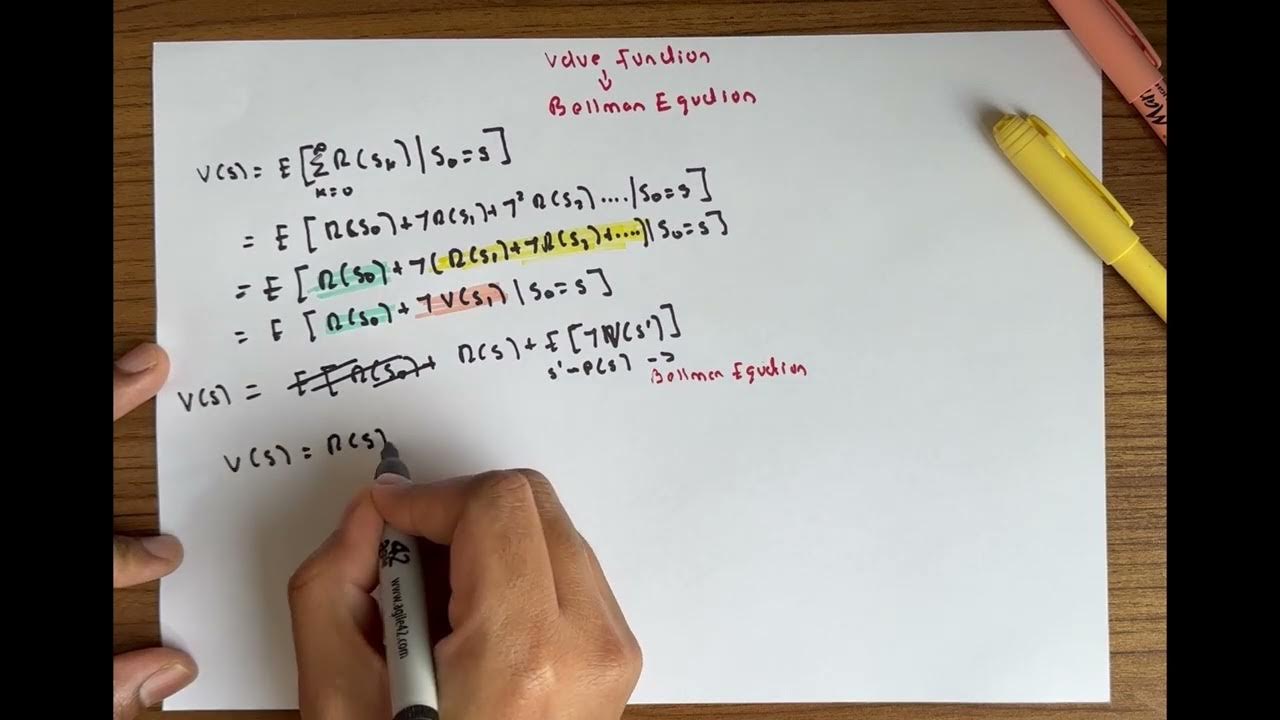 Value Function
↓
Bellman Equation
V(s) = E[∑ R(Sₖ) | S₀ = s]
∞
k=0
= E [R(S₀) + γR(S₁) + γ² R(S₂) .... | S₀ = s]
= E [R(S₀) + γ(R(S₁) + γR(S₂) + ....) | S₀ = s]
= E [R(S₀) + γV(S₁) | S₀ = s]
V(s) = E[R(S₀) + R(s) + E[γV(s')]
s'~P(s) -> Bellman Equation
V(s) = R(s)
www.agile42.com
42
Mar